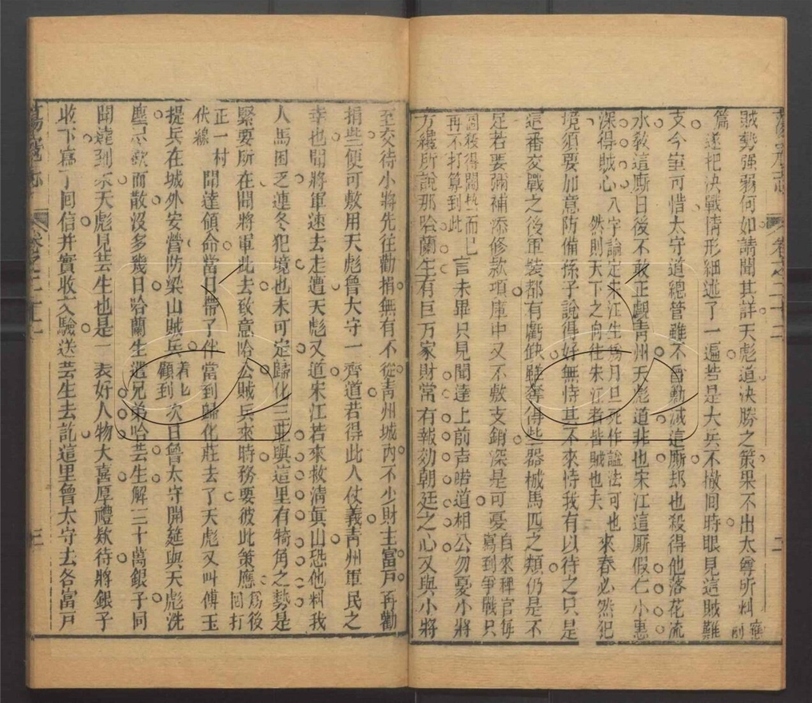 賊勢強弱何如請聞其詳天彪道決勝之策果不出太尊所料
篇 遂把決戰情形細述了一遍若是大兵不撤回時眼見這賊難
支今豈可惜太守道總管雖不曾勦滅這厮却也殺得他落花流
水敎這厮日後不敢正覷靑州天彪道非也宋江這厮假仁小惠
深得賊心 八字論定宋江生爲月旦死作謚法可也
然則天下之向往宋江者皆賊也夫 來春必然犯
境須要加意防備孫子說得好無恃其不來恃我有以待之只是
這番交戰之後軍裝都有虧缺雖奪得些器械馬匹之類仍是不
足若要彌補添修款項庫中又不敷支銷深是可憂 自來稗官每
寫到爭戰只
圖後得閙熱而已
再不打算到此 言未畢只見聞達上前聲喏道相公勿憂小將
方纔所說那哈蘭生有巨万家財當有報効朝廷之心又與小將
至交待小將先往勸捐無有不從靑州城內不少財主富戶再勸
捐些便可敷用天彪魯太守一齊道若得此人仗義靑州軍民之
幸也聞將軍速去走遭天彪又道宋江若來救淸眞山恐他料我
人馬困乏連冬犯境也未可定歸化三莊與這里有犄角之勢是
緊要所在聞將軍此去致意哈公賊兵來時務要彼此策應 爲後
回打
正一村
伏線 聞達領命當日帶了伴當到歸化莊去了天彪又叫傅玉
提兵在城外安營防梁山賊兵 顧到 次日魯太守開筵與天彪洗
塵盡歡而散沒多幾日哈蘭生遣兄弟哈芸生解三十萬銀子同
聞達到來天彪見芸生也是一表好人物大喜厚禮欵待將銀子
收下寫了回信幷實收交驗送芸生去訖這里魯太守去各富戶
蕩寇志 卷之二十二 三